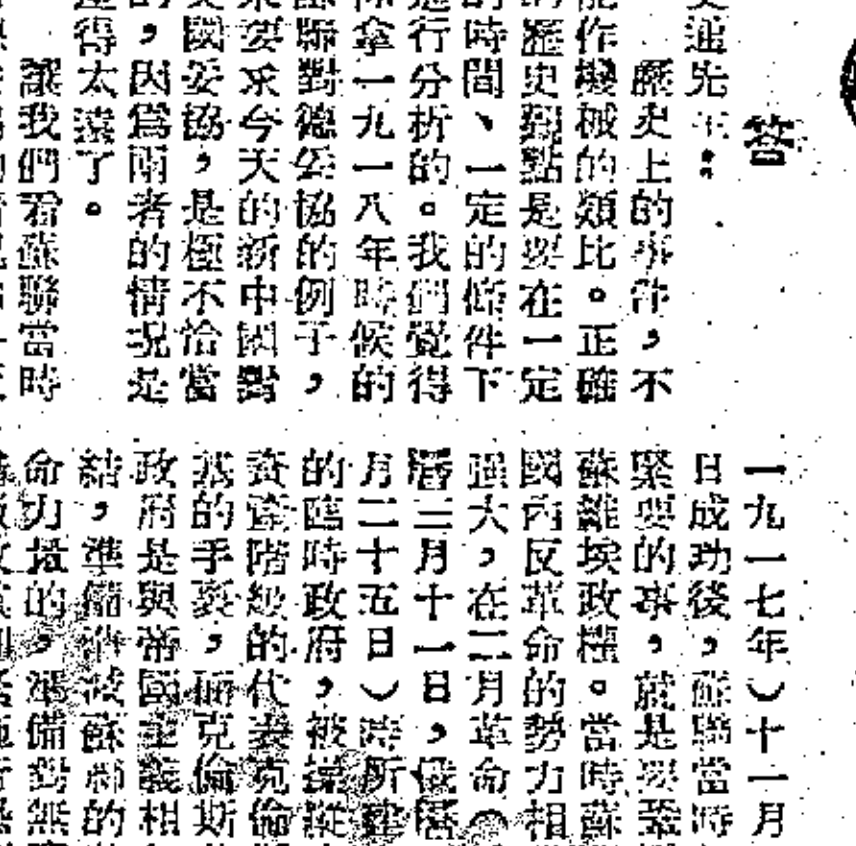 答
史通先生：
歷史上的事件，不
能作機械的類比。正確
的歷史觀點是要在一定
的時間、一定的條件下
進行分析的。我們覺得
你拿一九一八年時候的
蘇聯對德妥協的例子，
來要求今天的新中國對
美國妥協，是極不恰當
的，因爲兩者的情况是
差得太遠了。
讓我們看蘇聯當時
一九一七年）十一月
日成功後，蘇聯當時
緊要的事，就是要鞏
蘇維埃政權。當時蘇
國內反革命的勢力相
强大，在二月革命（
曆三月十一日，俄曆
月二十五日）時所建
的臨時政府，被操縱
資產階級的代表克倫
基的手裏，而克倫斯
政府是與帝國主義相
結，準備消滅蘇的
命力量的，準備對無